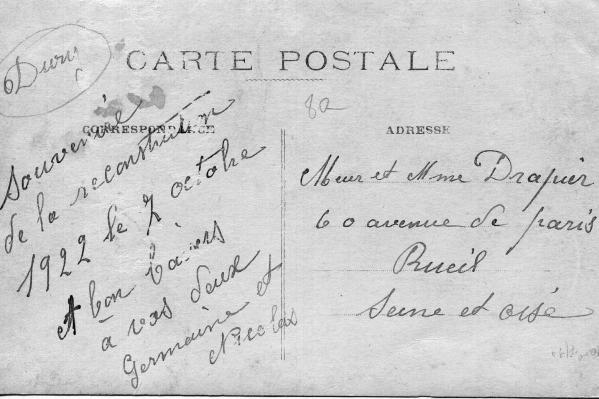 CARTE POSTALE
82
CORRESPONDANCE
Souvenir
de la reconstruction
1922 le 7 octobre
et bon Baisers
à vos deux
Germaine et
Nicolas
ADRESSE
Meur et Mme Drapier
60 avenue de paris
Rueil
Seine et oise